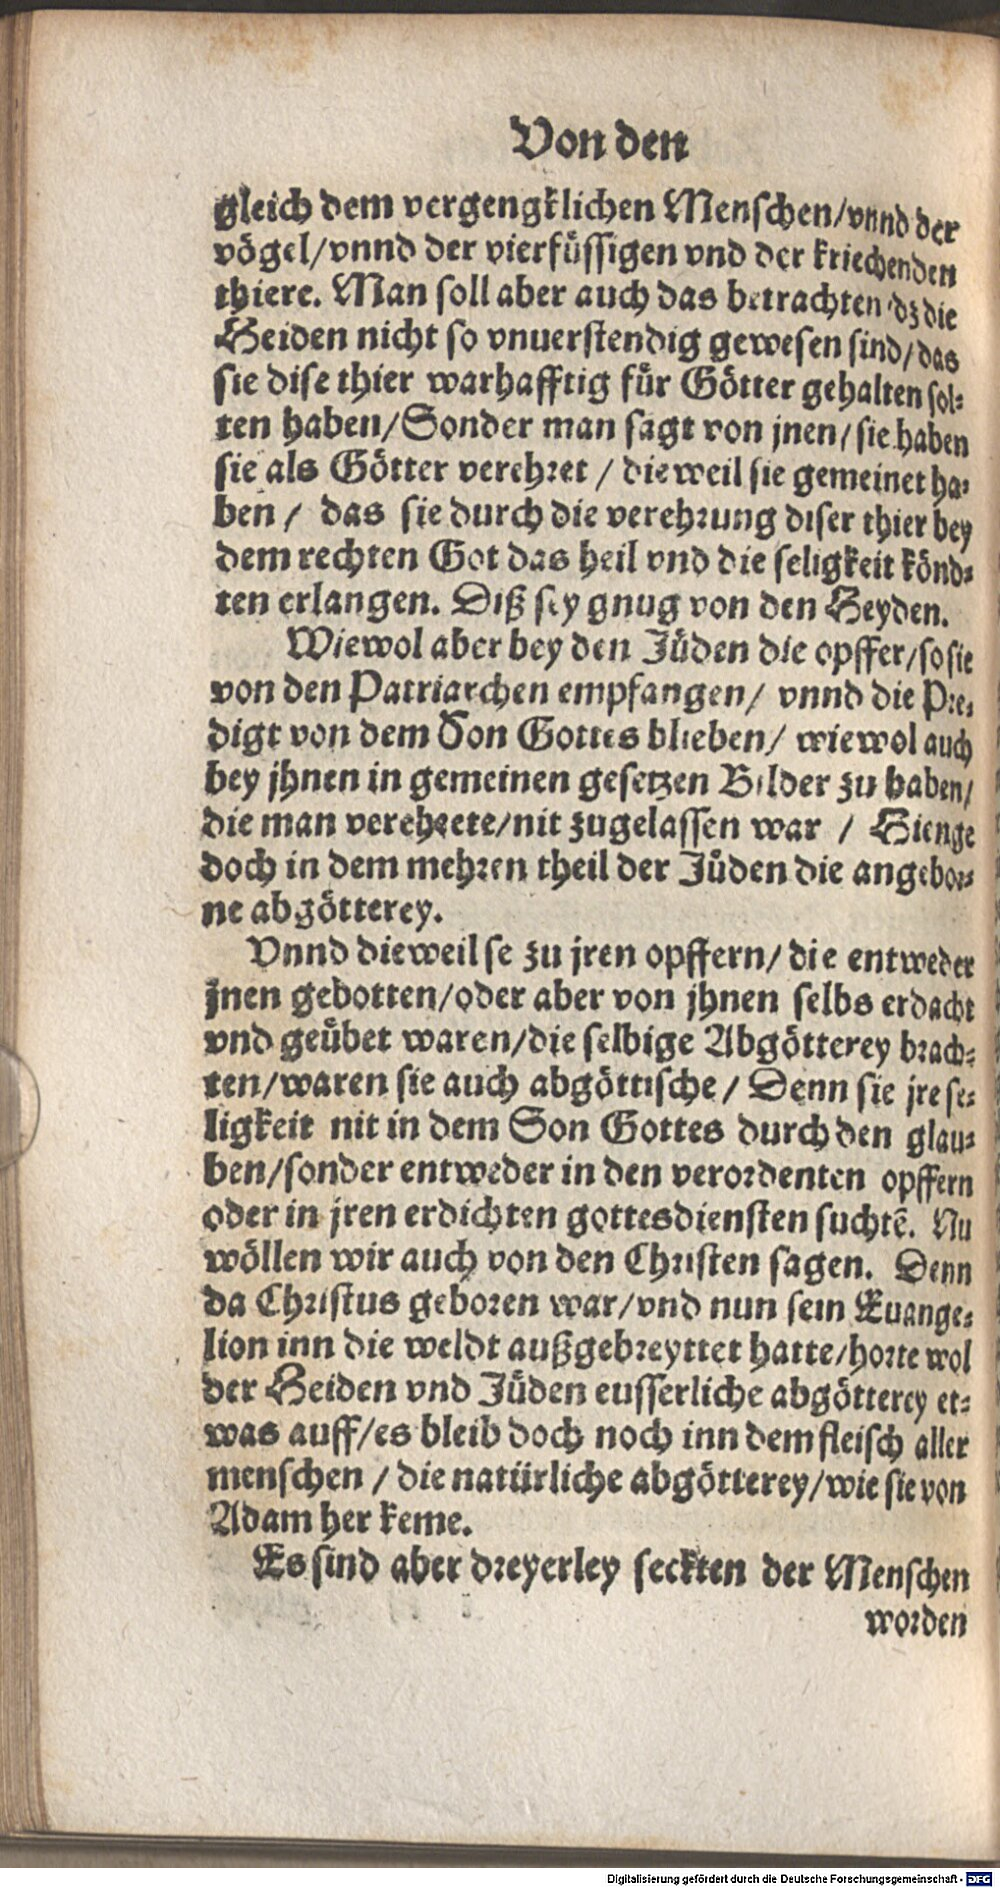 Von den
gleich dem vergengklichen Menschen/vnnd der
vögel/vnnd der vierfüssigen vnd der kriechenden
thiere. Man soll aber auch das betrachten dz die
Heiden nicht so vnuerstendig gewesen sind/das
sie dise thier warhafftig für Götter gehalten sol⸗
ten haben/Sonder man sagt von jnen/sie haben
sie als Götter verehret / dieweil sie gemeinet ha⸗
ben / das sie durch die verehrung diser thier bey
dem rechten Got das heil vnd die seligkeit könd⸗
ten erlangen. Diß sey gnug von den Heyden.
Wiewol aber bey den Jüden die opffer/so sie
von den Patriarchen empfangen/ vnnd die Pre⸗
digt von dem Son Gottes blieben/ wiewol auch
bey jhnen in gemeinen gesetzen Bilder zu haben/
die man verehrete/nit zugelassen war / Hienge
doch in dem mehren theil der Jüden die angebor⸗
ne abgötterey.
Vnnd dieweil se zu jren opffern/ die entweder
jnen gebotten/oder aber von jhnen selbs erdacht
vnd geübet waren/die selbige Abgötterey brach⸗
ten/waren sie auch abgöttische/ Denn sie jre se⸗
ligkeit nit in dem Son Gottes durch den glau⸗
ben/sonder entweder in den verordenten opffern
oder in jren erdichten gottesdiensten suchtē. Nu
wöllen wir auch von den Christen sagen. Denn
da Christus geboren war/vnd nun sein Euange⸗
lion inn die weldt außgebreyttet hatte/horte wol
der Heiden vnd Jüden eusserliche abgötterey et⸗
was auff/es bleib doch noch inn dem fleisch aller
menschen / die natürliche abgötterey/wie sie von
Adam her keme.
Es sind aber dreyerley seckten der Menschen
worden
Digitalisierung gefördert durch die Deutsche Forschungsgemeinschaft - DFG